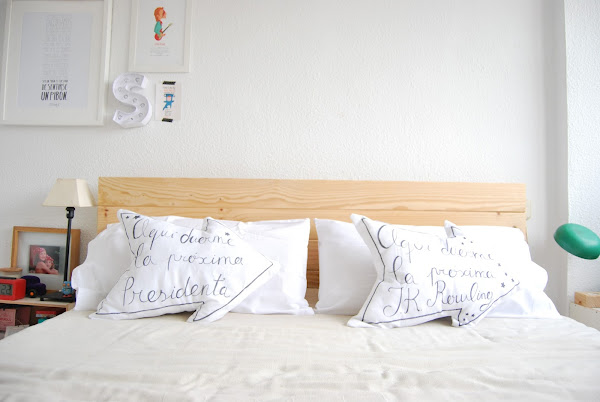 DESENTIRSE
UN MIRÓN.
S
Aquí duerme
la próxima
Presidenta
Aquí duerme
la próxima
JK Rowling